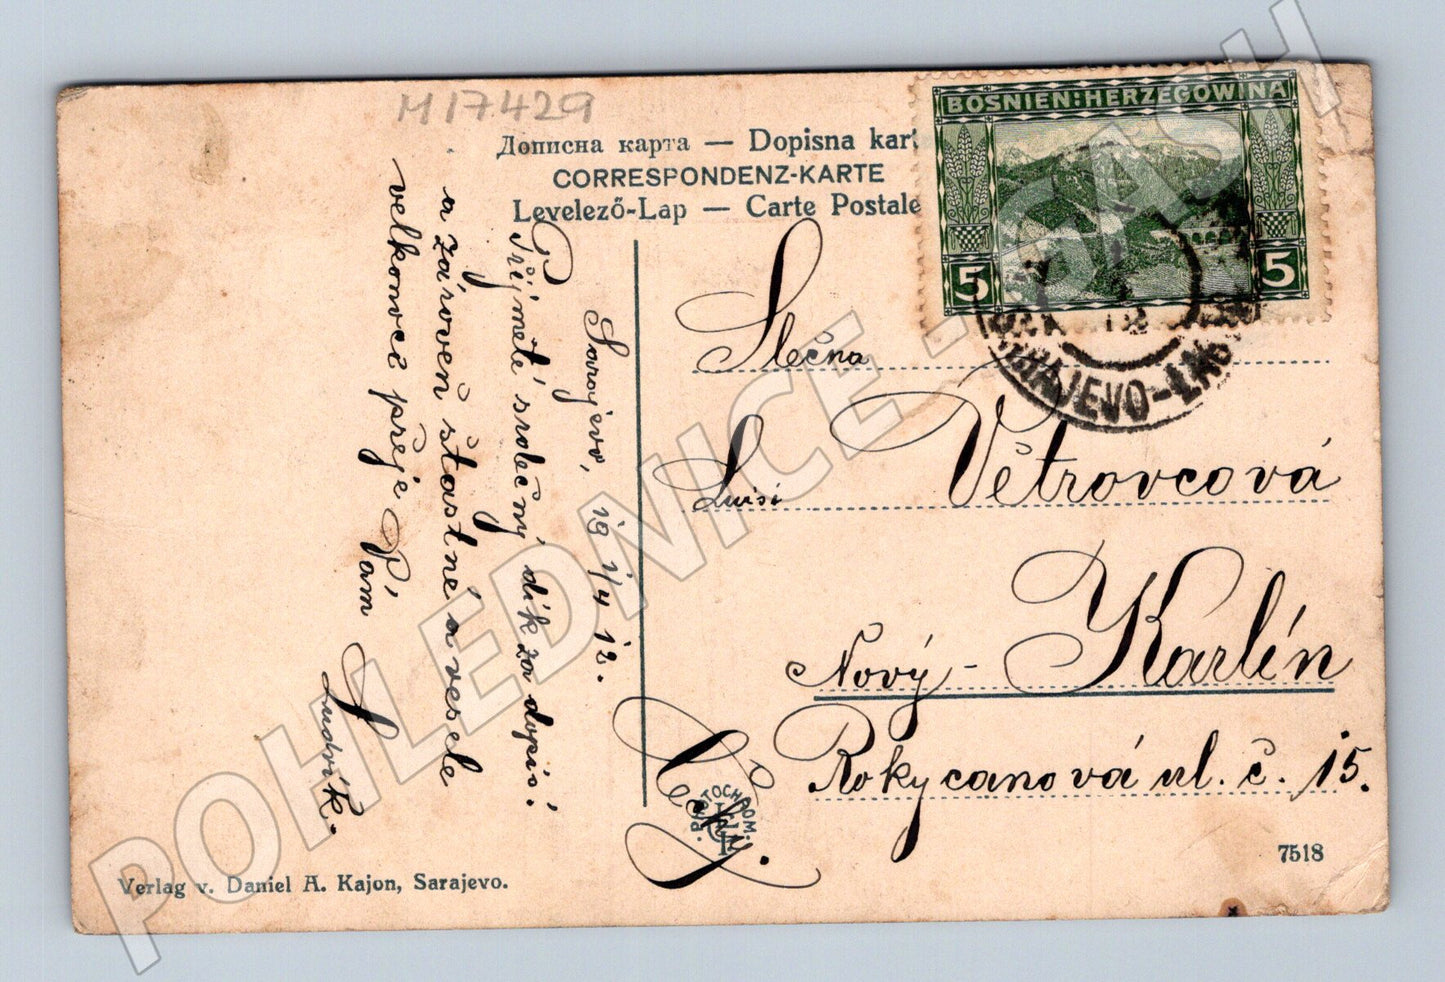 M17429
Дописна карта — Dopisna kart
CORRESPONDENZ-KARTE
Levelező-Lap — Carte Postale
BOSNIEN:HERZEGOWINA
5 5
SARAJEVO-LAG
Sarajevo, 19 1/4 12.
Přijměte srdečný dík za dopis!
a zároveň šťastné a veselé
velkonoce přeje Vám
Ludvík.
Slečna
Luisi Větrovcová
Nový-Karlín
Rokycanová ul. č. 15.
Čechy.
PHOTOCHROM.
Verlag v. Daniel A. Kajon, Sarajevo.
7518
POHLEDNICE - SASH